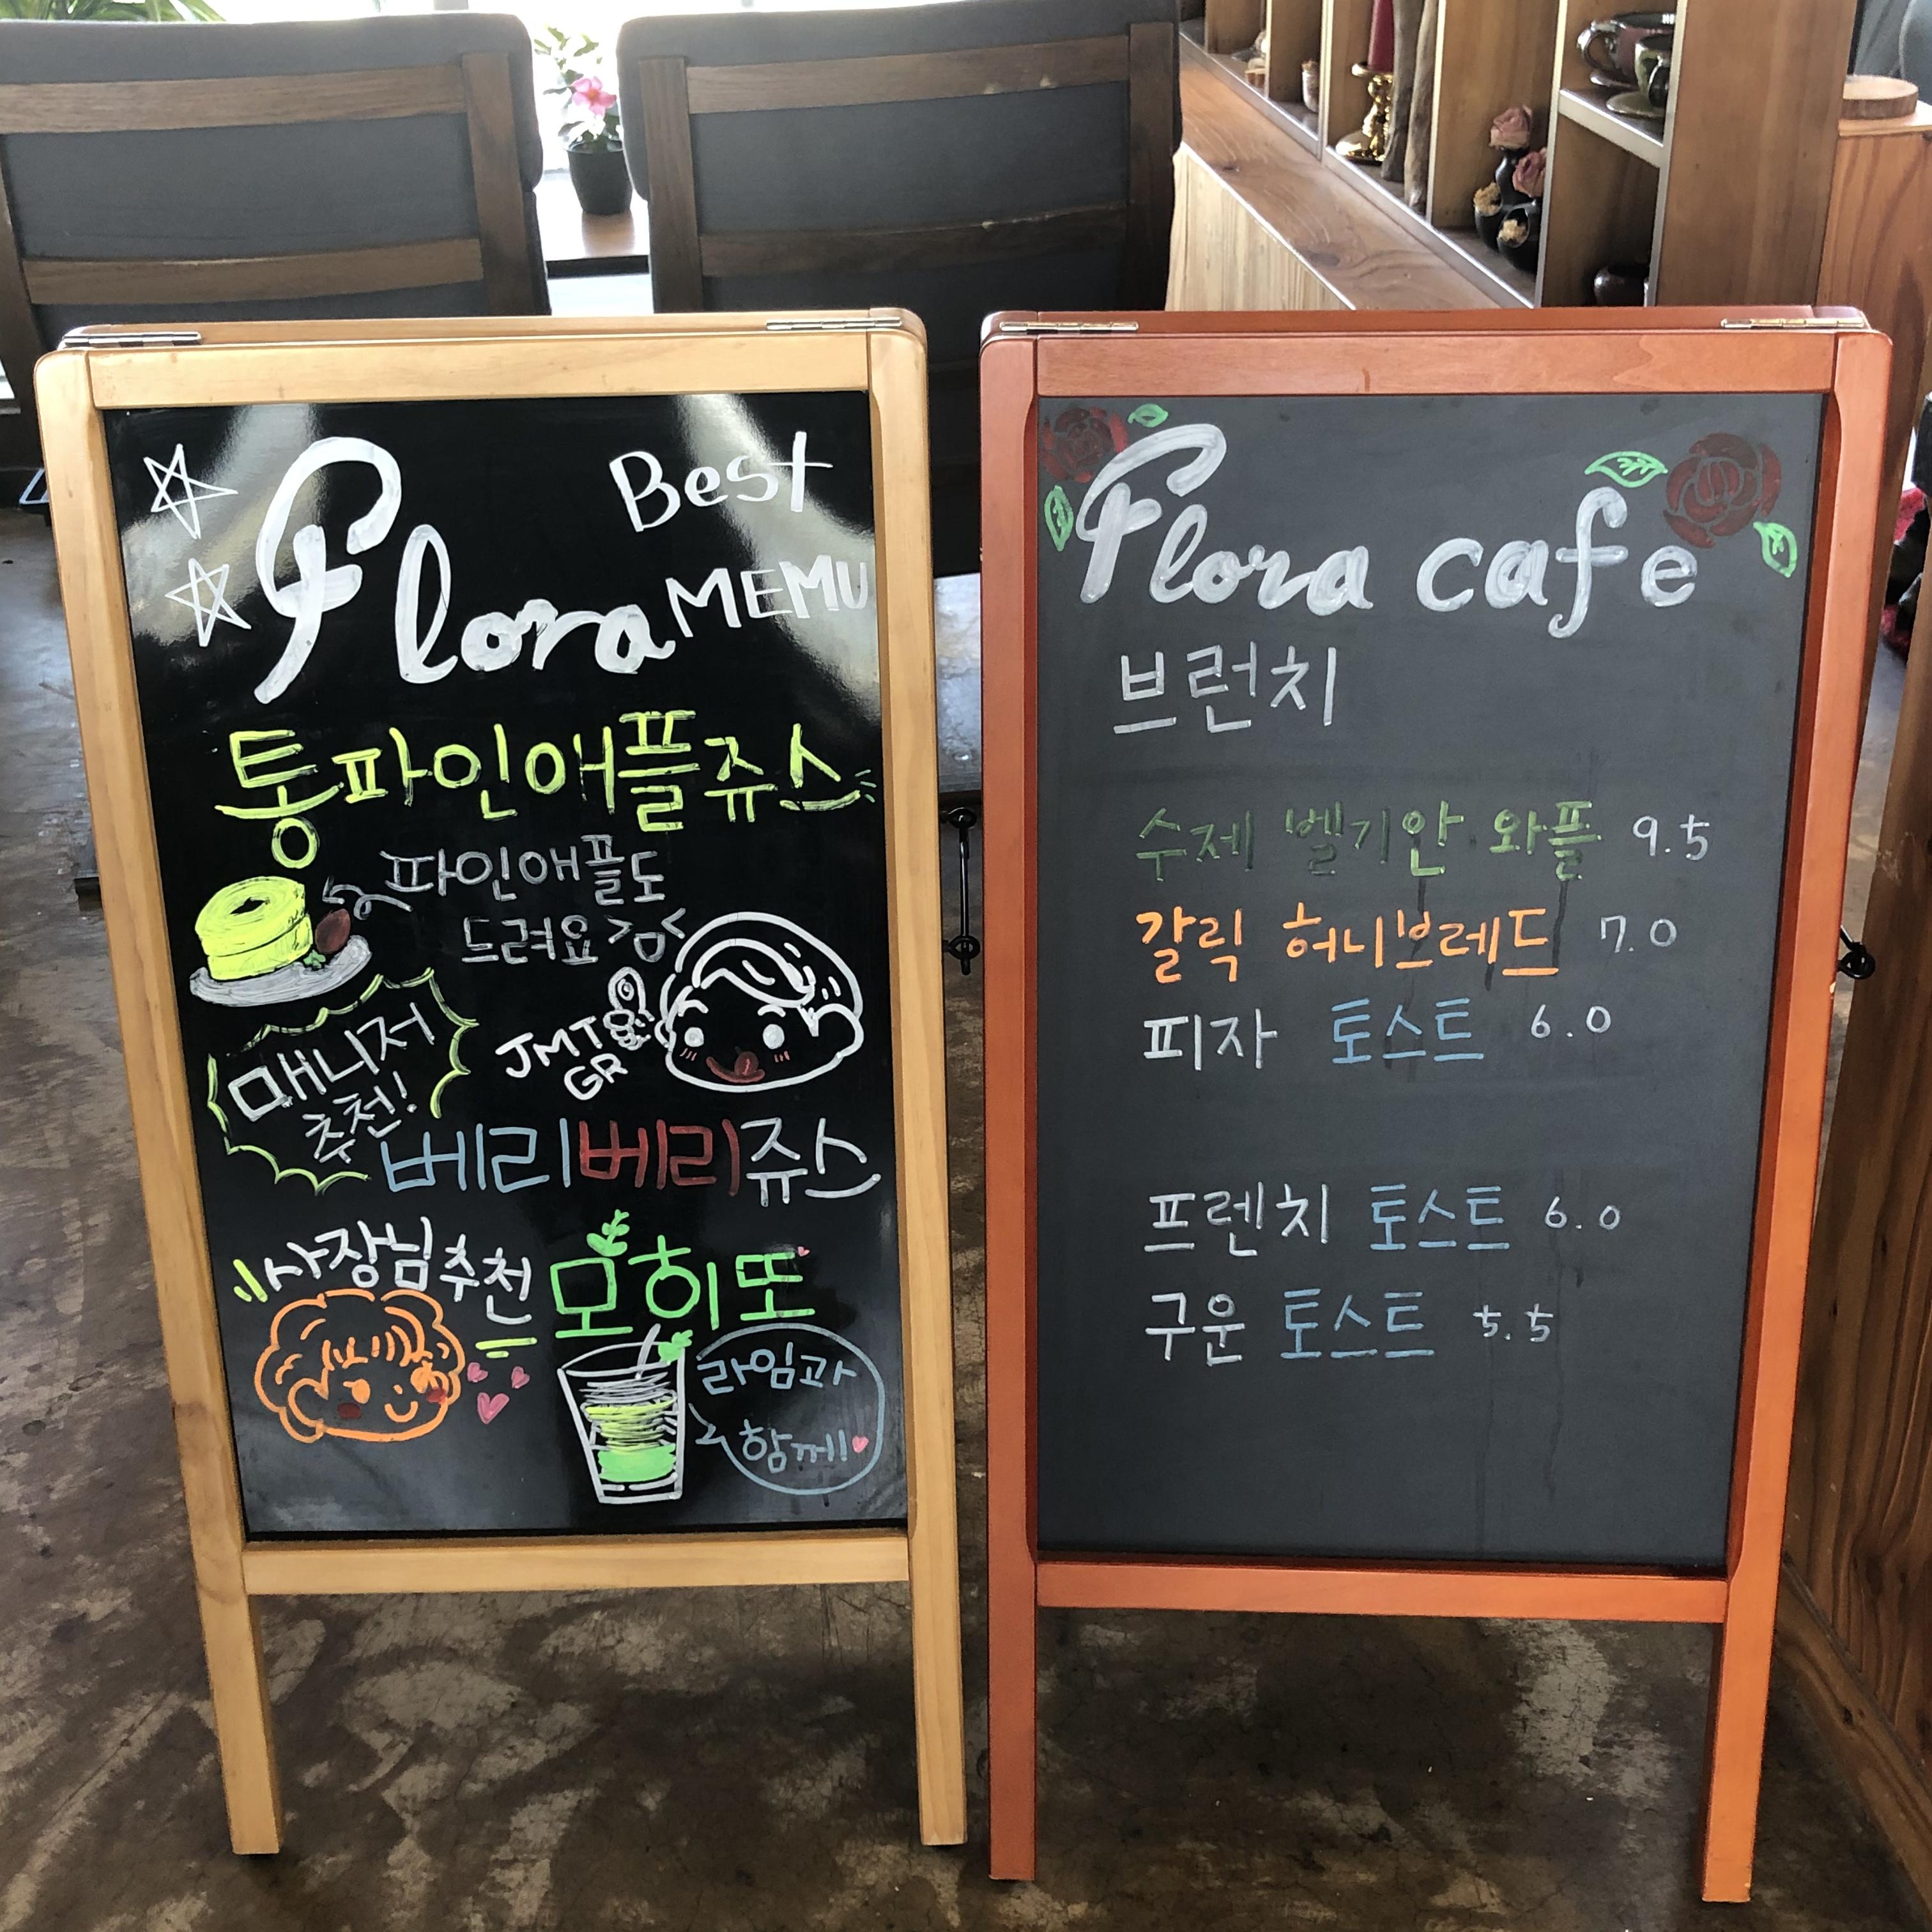 Flora Best
MEMU
통파인애플쥬스
파인애플도
드려요 >ㅁ<
JMT
GR
매니저
추천!
베리베리쥬스
사장님추천
모히또
라임과
함께
Flora cafe
브런치
수제 벨기안 와플 9.5
갈릭 허니브레드 7.0
피자 토스트 6.0
프렌치 토스트 6.0
구운 토스트 5.5